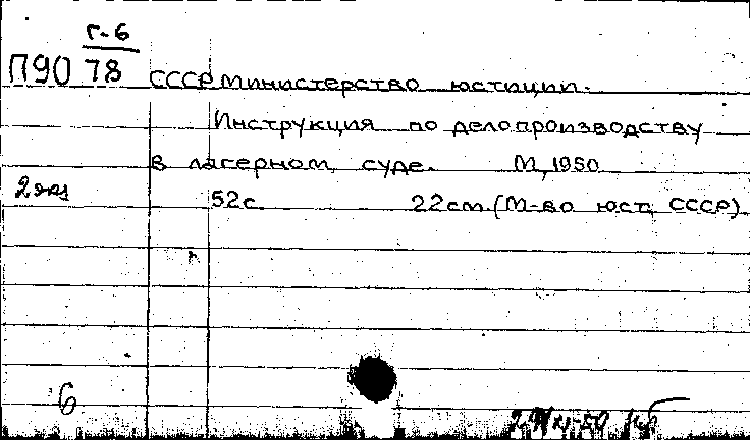 Г-6
П90 78 СССР Министерство юстиции.
Инструкция по делопроизводству
в лагерном суде. М, 1950
2 экз
52с. 22см. (М-во юст. СССР)
6